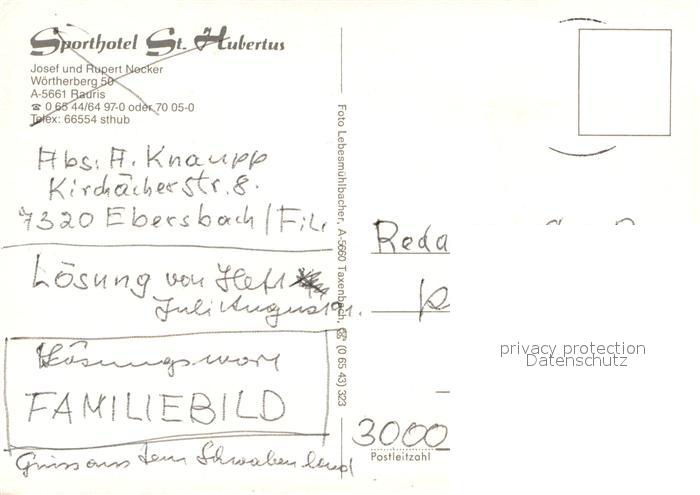 Sporthotel St. Hubertus
Josef und Rupert Nocker
Wörtherberg 50
A-5661 Rauris
☎ 0 65 44/64 97-0 oder 70 05-0
Telex: 66554 sthub
Abs: A. Knaupp
Kirchäckerstr. 8.
7320 Ebersbach/Fil.
Lösung von Heft
Juli August.
Lösungswort
FAMILIEBILD
Gruss aus dem Schwabenland
Foto Lebesmühlbacher, A-5660 Taxenbach, ☎ (0 65 43) 323
Reda
3000
Postleitzahl
privacy protection
Datenschutz